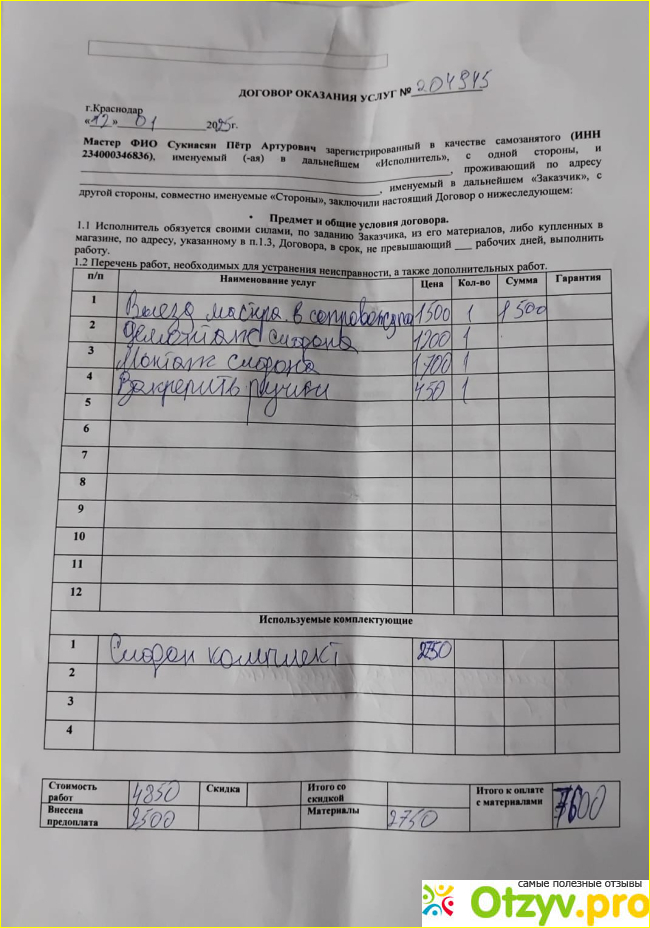 ДОГОВОР ОКАЗАНИЯ УСЛУГ № 204945
г.Краснодар
«12» 01 2025г.
Мастер ФИО Сукиасян Пётр Артурович зарегистрированный в качестве самозанятого (ИНН
234000346836), именуемый (-ая) в дальнейшем «Исполнитель», с одной стороны, и
, проживающий по адресу
, именуемый в дальнейшем «Заказчик», с
другой стороны, совместно именуемые «Стороны», заключили настоящий Договор о нижеследующем:
• Предмет и общие условия договора.
1.1 Исполнитель обязуется своими силами, по заданию Заказчика, из его материалов, либо купленных в
магазине, по адресу, указанному в п.1.3, Договора, в срок, не превышающий ___ рабочих дней, выполнить
работу.
1.2 Перечень работ, необходимых для устранения неисправности, а также дополнительных работ.
п/п Наименование услуг Цена Кол-во Сумма Гарантия
1 Выезд мастера в 1500 1 1500
2 Демонтаж сифона 1200 1
3 Монтаж сифона 1700 1
4 Закрепить ручки 450 1
5
6
7
8
9
10
11
12
Используемые комплектующие
1 Сифон комплект 2750
2
3
4
Стоимость работ 4850 Скидка Итого со скидкой Итого к оплате с материалами 7600
Внесена предоплата 2500 Материалы 2750
самые полезные отзывы
Otzyv.pro